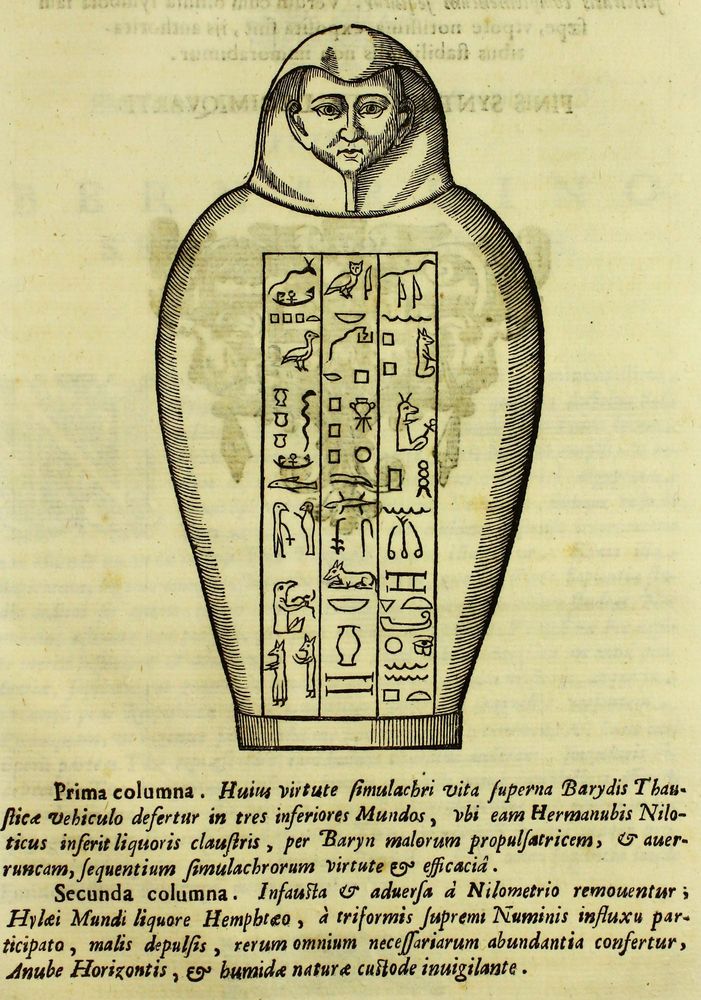 Prima columna. Huius virtute ſimulachri vita ſuperna Barydis Thau-
ſticæ vehiculo defertur in tres inferiores Mundos, vbi eam Hermanubis Nilo-
ticus inſerit liquoris clauſtris, per Baryn malorum propulſatricem, & auer-
runcam, ſequentium ſimulachrorum virtute & efficaciâ.
Secunda columna. Infauſta & aduerſa à Nilometrio remouentur;
Hylæi Mundi liquore Hemphtæo, à triformis ſupremi Numinis influxu par-
ticipato, malis depulſis, rerum omnium neceſſariarum abundantia confertur,
Anube Horizontis, & humidæ naturæ cuſtode inuigilante.